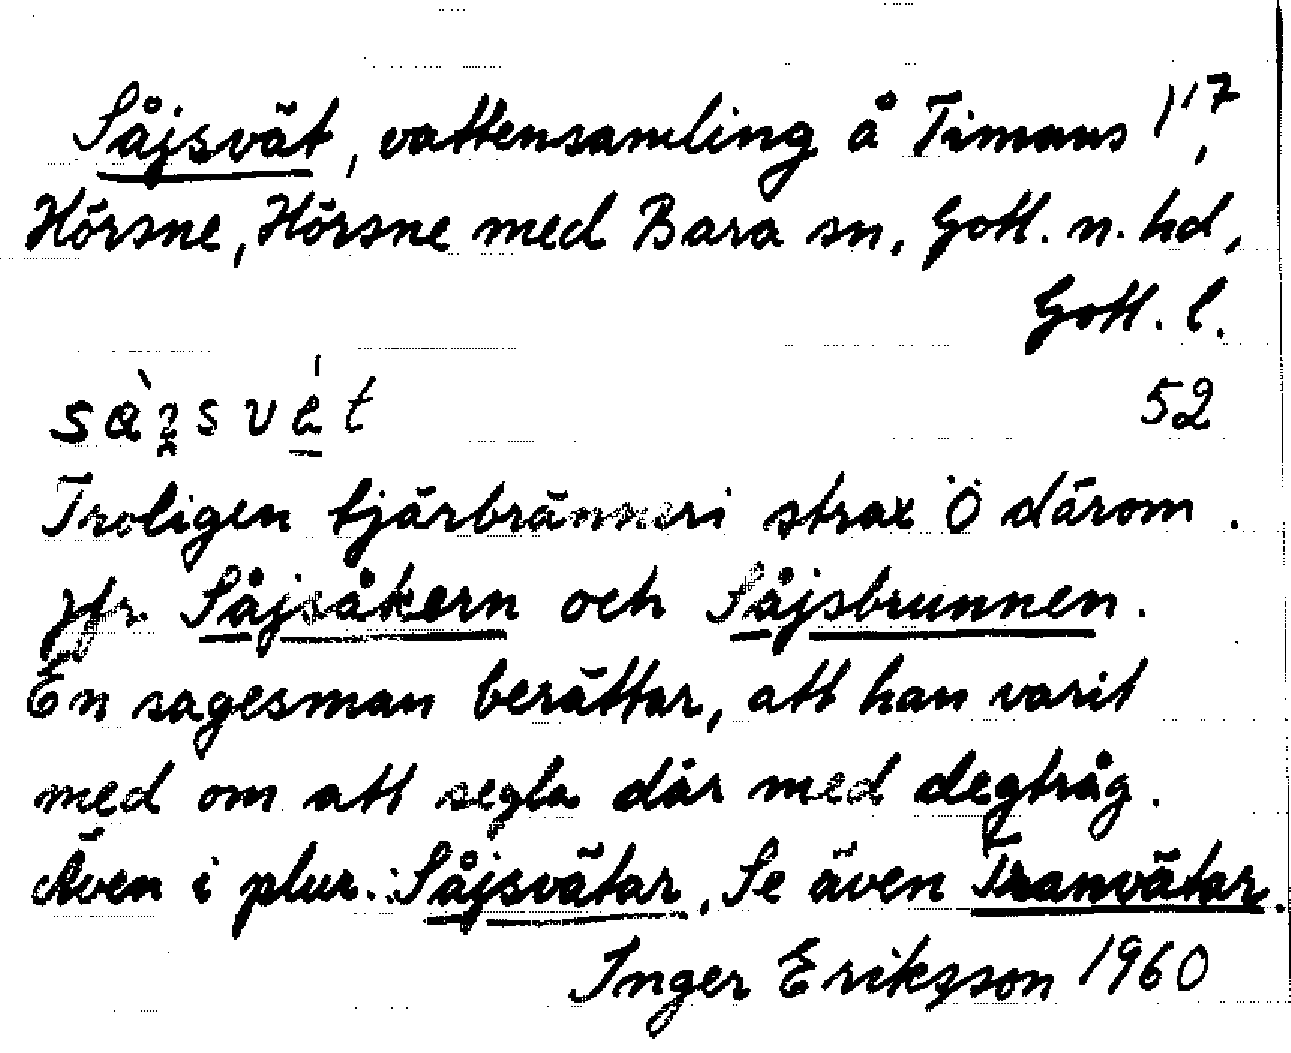 Såjsvät, vattensamling å Timans 1'7,
Hörsne, Hörsne med Bara sn, Gotl. n. hd,
Gotl. l.
52
Troligen tjärbränneri strax Ö därom.
Jfr Såjsåkern och Såjsbrunnen.
En sagesman berättar, att han varit
med om att segla där med degtråg.
Även i plur.: Såjsvätar. Se även Tranvätar.
Inger Erikzson 1960